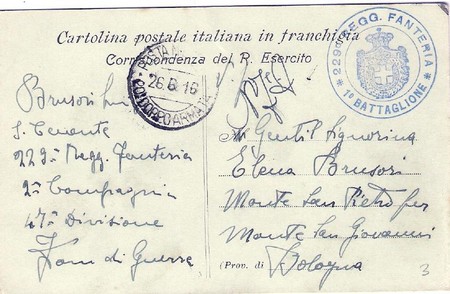 Cartolina postale italiana in franchigia
Corrispondenza del R. Esercito
POSTA
26.6.16
CORPO ARMATA
* 229° REGG. FANTERIA *
1° BATTAGLIONE
Brusori
S. Tenente
229° Regg. Fanteria
2ª Compagnia
47ª Divisione
Zona di Guerra
Gentil Signorina
Elena Brusori
Monte San Pietro per
Monte San Giovanni
(Prov. di Bologna
3